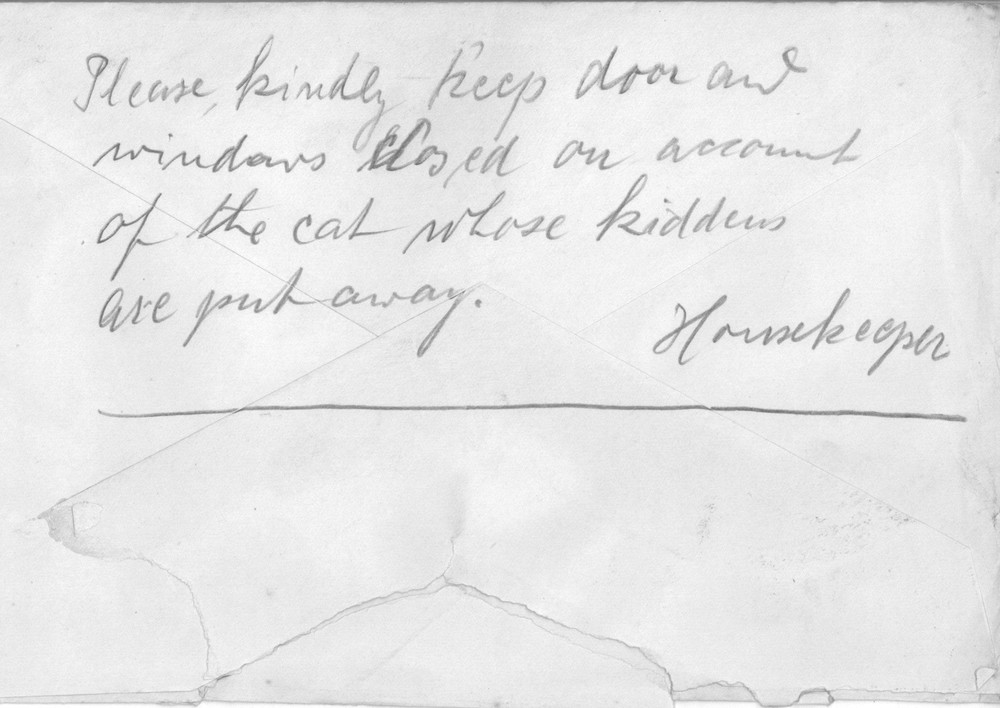 Please, kindly keep door and
windows closed on account
of the cat whose kiddens
are put away.
Housekeeper